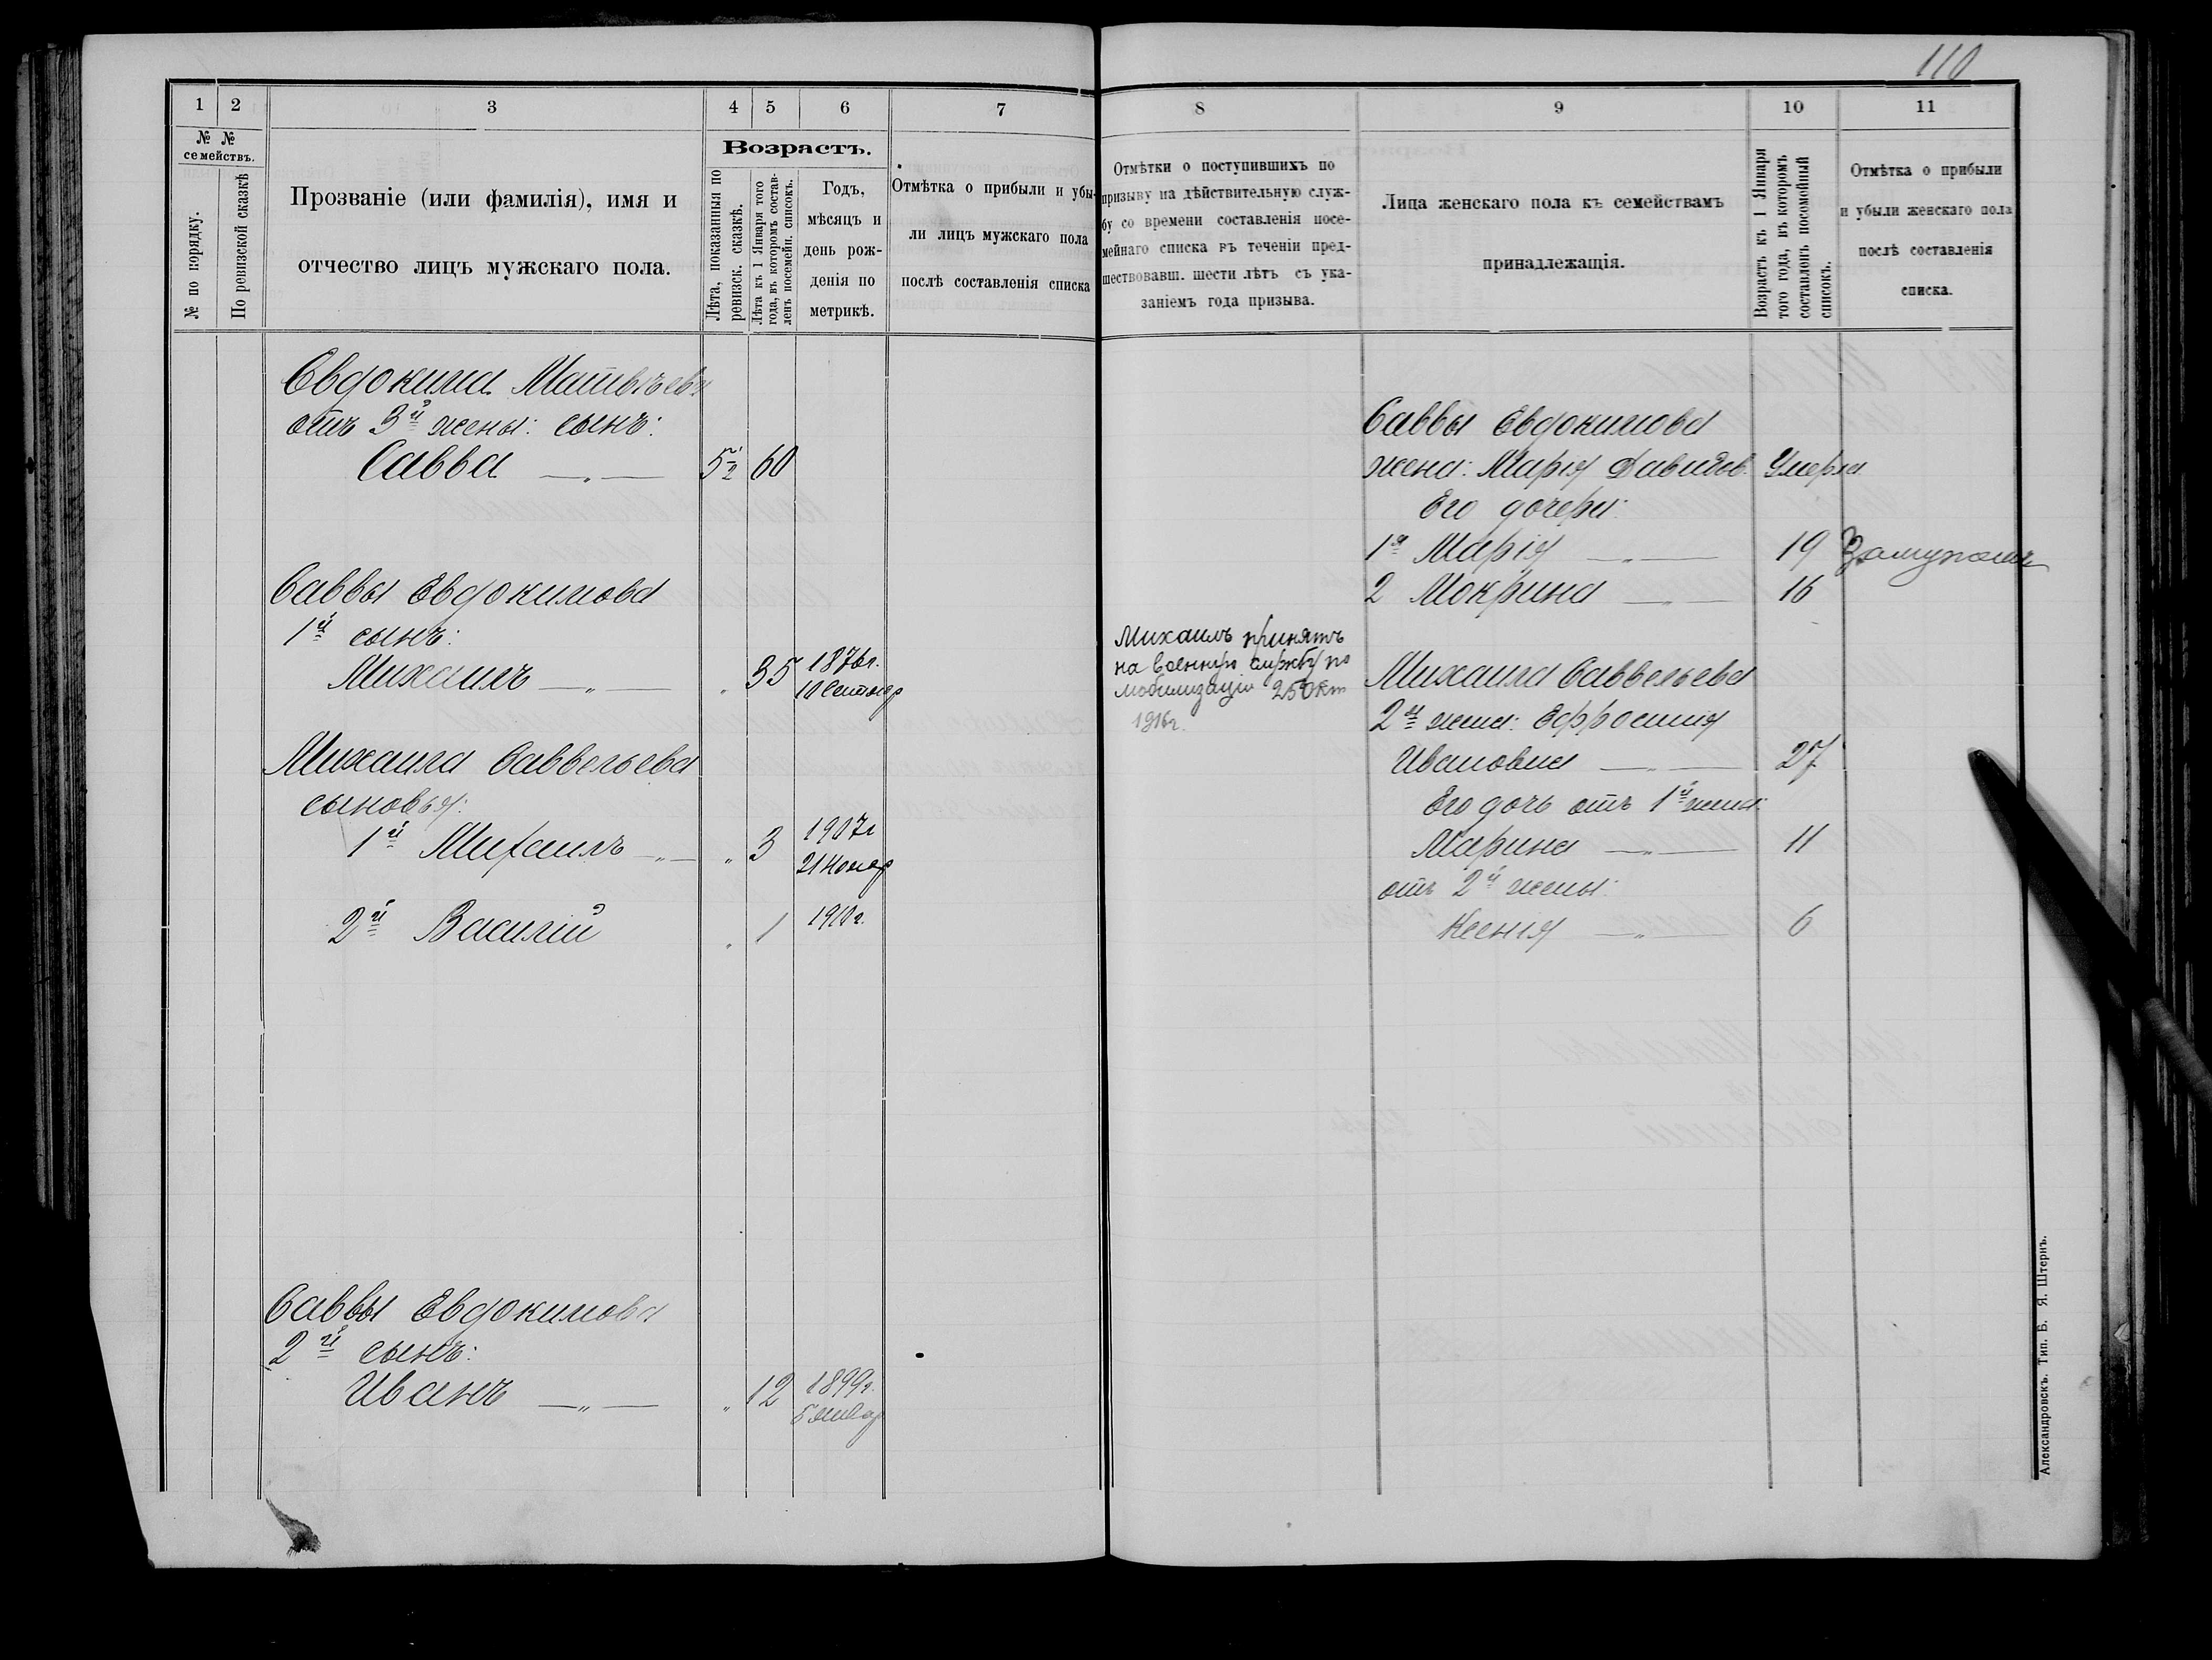 110
1
2
3
4
5
6
7
№ №
семействъ.
№ по порядку.
По ревизской сказкѣ
Прозваніе (или фамилія), имя и
отчество лицъ мужскаго пола.
Возрастъ.
Лѣта, показанныя по
ревизск. сказкѣ.
Лѣта къ 1 Января того
года, въ которомъ состав-
ленъ посемейн. списокъ.
Годъ,
мѣсяцъ и
день рож-
денія по
метрикѣ.
Отмѣтка о прибыли и убы-
ли лицъ мужскаго пола
послѣ составленія списка
Евдокима Матвѣева
отъ 3й жены: сынъ:
Савва —„— 5½ 60
Саввы Евдокимова
1й сынъ:
Михаилъ —„— „ 35 1876г.
10 Сентябр
Михаила Саввельева
сыновья:
1й Михаилъ —„— „ 3 1907г
21 Ноябр
2й Василій „ 1 1910г.
Саввы Евдокимова
2й сынъ:
Иванъ —„— „ 12 1899г.
5 Январ
8
9
10
11
Отмѣтки о поступившихъ по
призыву на дѣйствительную служ-
бу со времени составленія посе-
мейнаго списка въ теченіи пред-
шествовавш. шести лѣтъ съ ука-
заніемъ года призыва.
Лица женскаго пола къ семействамъ
принадлежащія.
Возрастъ къ 1 Января
того года, въ которомъ
составленъ посемейный
списокъ.
Отмѣтка о прибыли
и убыли женскаго пола
послѣ составленія
списка.
Саввы Евдокимова
жена: Марія Давидов. Умерла
Его дочери:
1я Марія —„— 19 Замужемъ
2 Мокрина —„— 16
Михаилъ принятъ
на военную службу по
мобилизаціи 25 Окт
1916г.
Михаила Саввельева
2я жена: Ефросинія
Ивановна —„— 27
Его дочь отъ 1й жены:
Марина —„— 11
отъ 2й жены:
Ксенія —„— 6
Александровскъ. Тип. Б. Я. Штернъ.